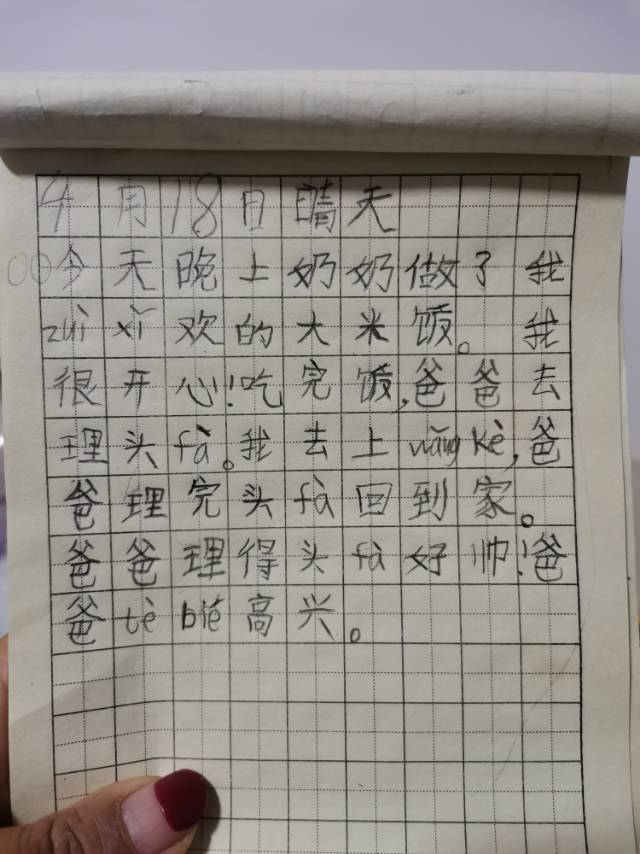 4月18日晴天
今天晚上奶奶做了我
zuì xǐ欢的大米饭。我
很开心!吃完饭,爸爸去
理头fà。我去上wǎng kè,爸
爸理完头fà回到家。
爸爸理得头fà好帅!爸
爸tè bié高兴。